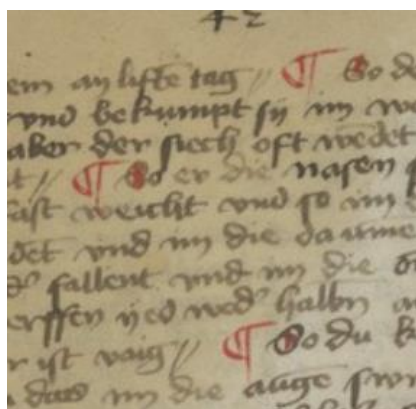 42
em an lifte tag // ¶ So d
vnd bekumpt sy im w
aber der siech oft wedet
t // ¶ So er die nasen s
fast weicht vnd so im
det vnd im die daume
fallent vnd im die
erffen yed wed' halbn a
r ist vaig // ¶ So du k
das im die auge swr